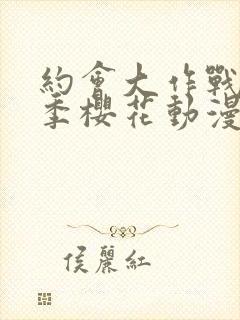 約會大作戰
季櫻花動漫
侯麗紅